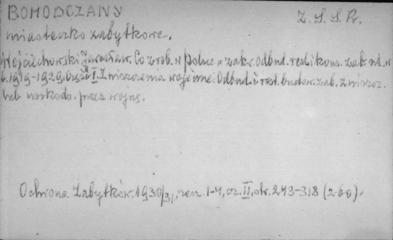 BOHODCZANY Z.S.S.R.
miasteczko zabytkowe.
Wojciechowski Jarosław. Co zrob. w Polsce w zakr. odbud. rest. i kons. zab. szt. w
l. 1919-1929. Część I. Zniszczenia wojenne. Odbud. i rest. budow. zab. zniszcz.
lub uszkodz. przez wojnę.
Ochrona Zabytków. 1930/31, zesz. 1-4, cz. II, str. 243-318 (260).